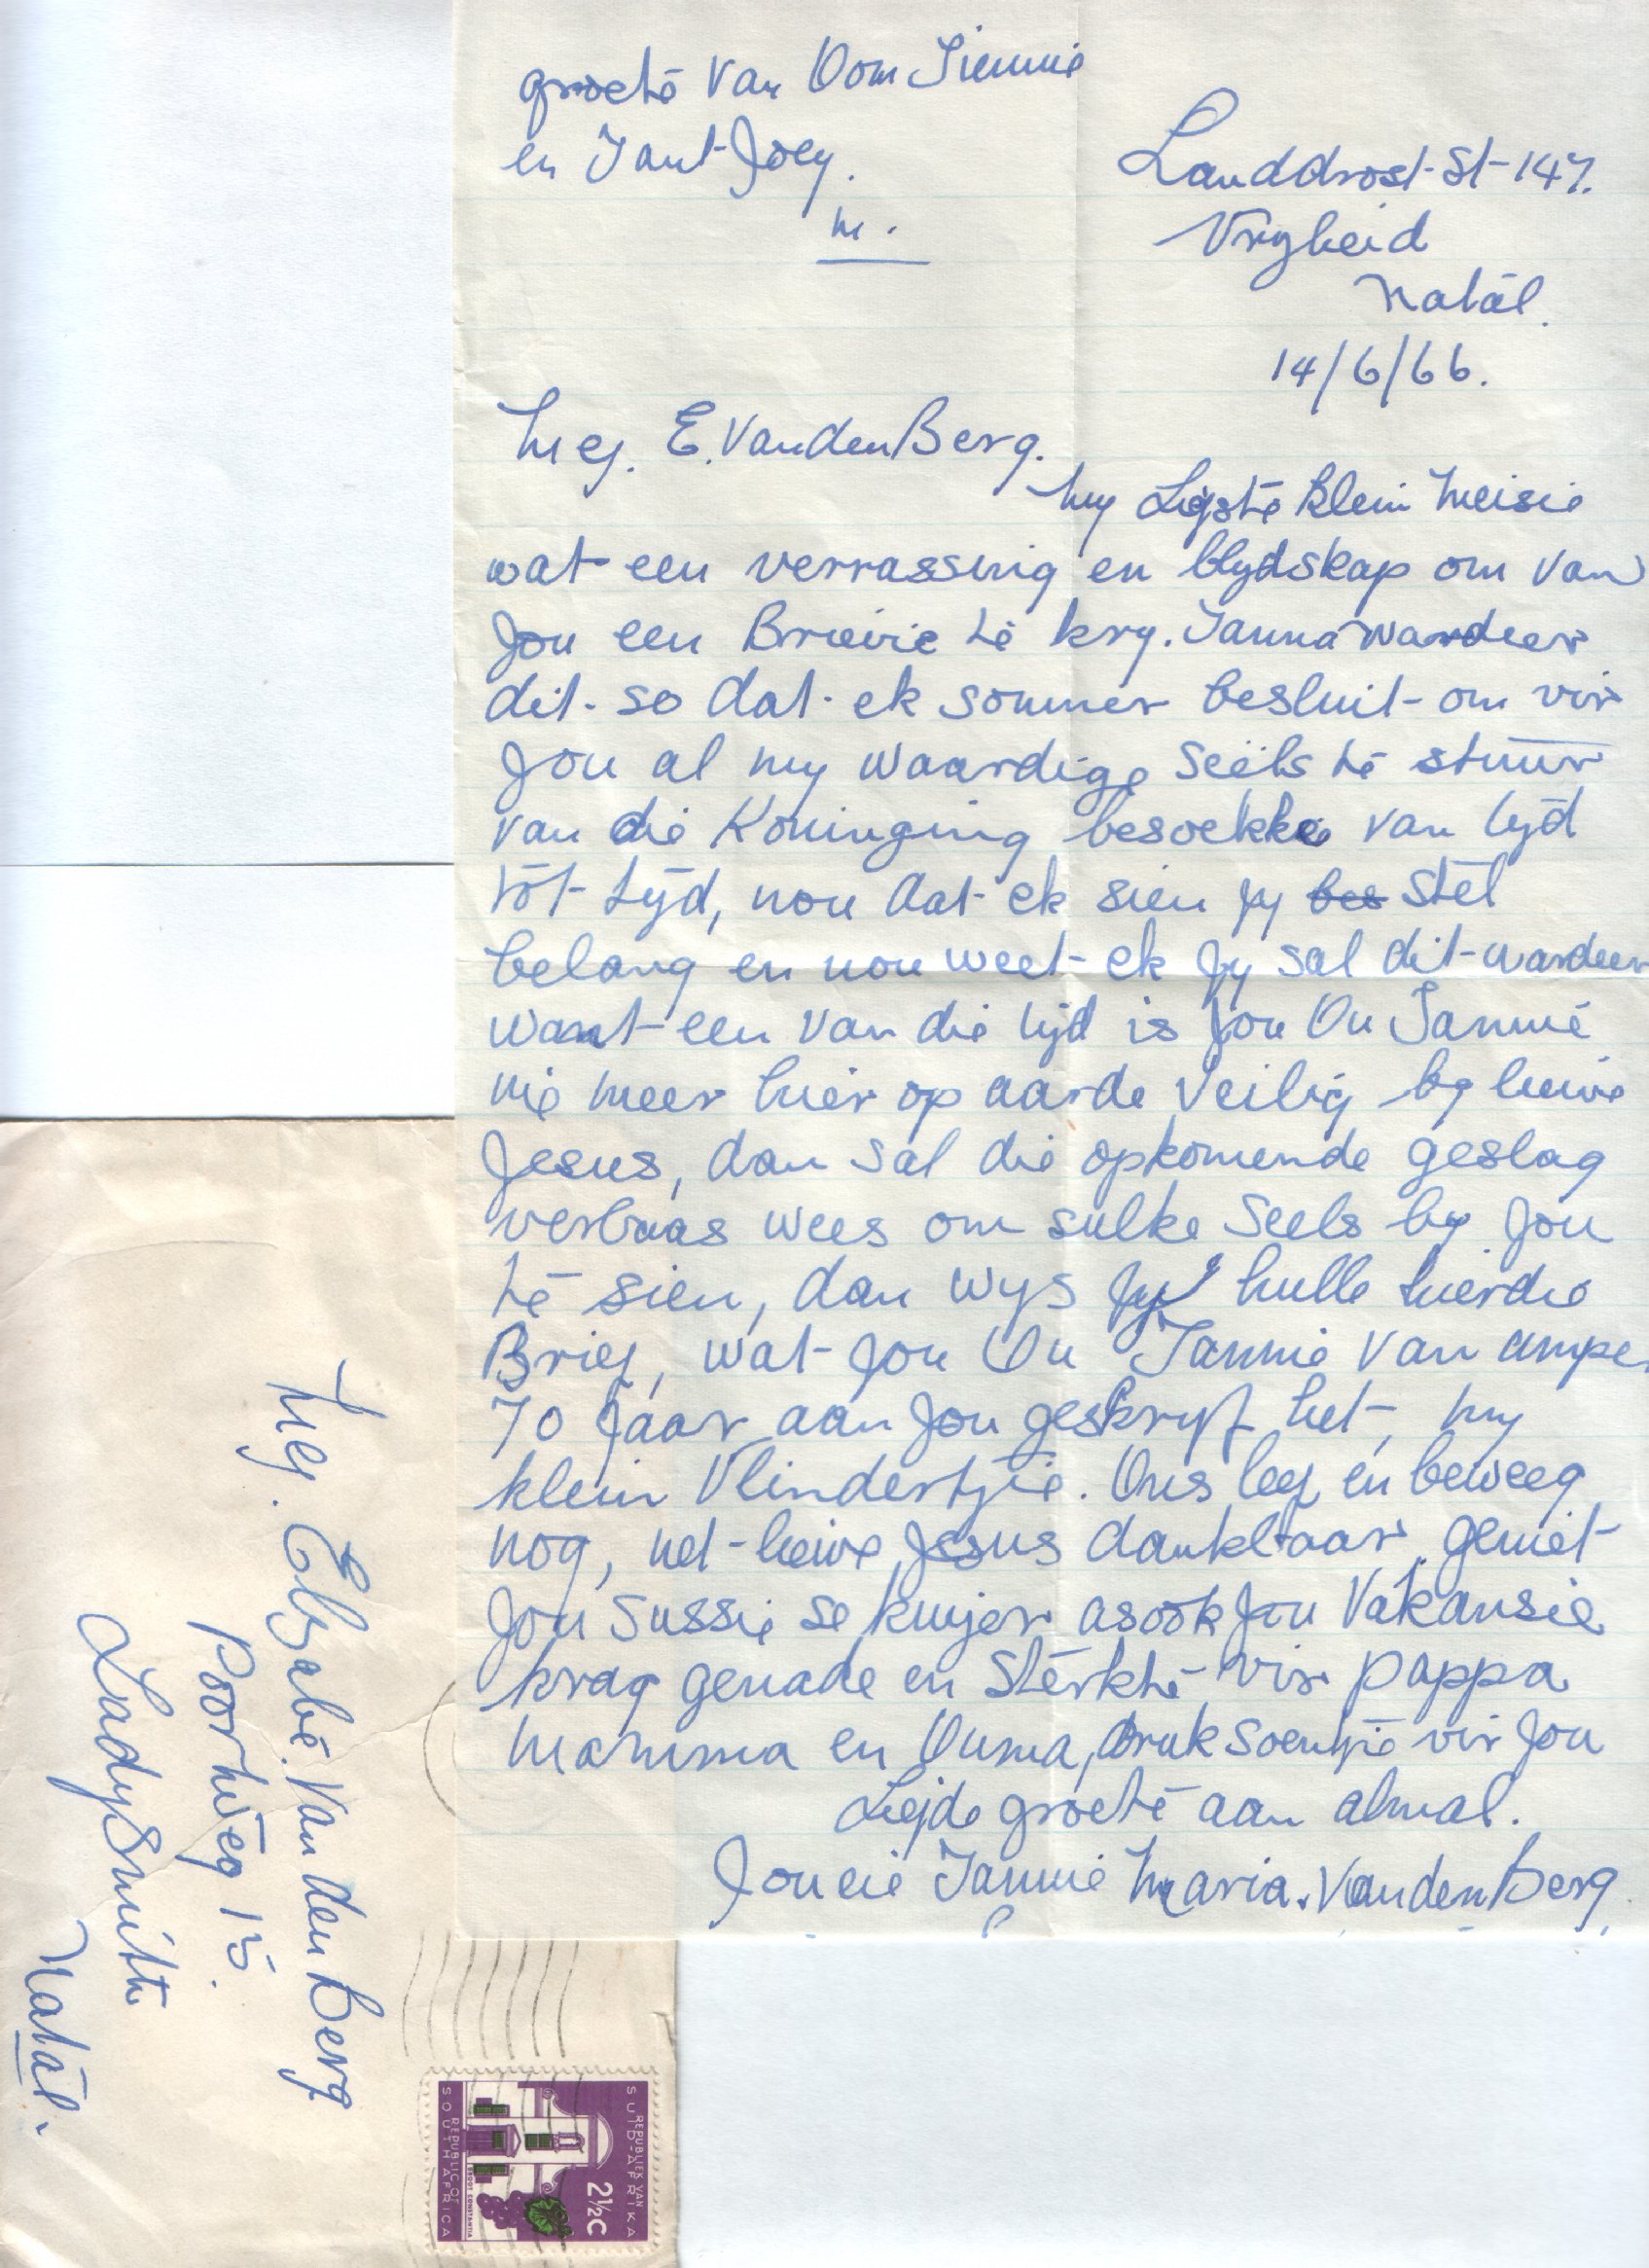 groete van Oom Siennie
en Tant Joey.
M.
Landdrost-St-147.
Vryheid
Natal.
14/6/66.
Mej. E. Van den Berg.
My Liefste klein Meisie
wat een verrassing en blydskap om van
Jou een Briewie te kry. Tanna wardeer
dit so dat ek sommer besluit om vir
Jou al my waardige Seëls te stuur
van die Koninging besoekke van tyd
tot tyd, nou dat ek sien Jy bes stel
belang en nou weet ek Jy sal dit wardeer
want een van die tyd is Jou Ou Tannie
nie meer hier op aarde veilig by liewe
Jesus, dan sal die opkomende geslag
verbaas wees om sulke Seels by Jou
te sien, dan wys Jy hulle hierdie
Brief, wat Jou Ou Tannie van amper
70 Jaar aan Jou geskryf het, my
klein Vlindertjie. Ons leef en beweeg
nog, net liewe Jesus dankbaar, geniet
Jou Sussie se kuijer asook Jou Vakansie
krag genade en Sterkte vir Pappa
Mamma en Ouma, druk soentjie vir Jou
Liefde groete aan almal.
Jou eie Tannie Maria. Van den Berg.
Mej. Elsabe. Van den Berg
Poortweg 15.
LadySmith
Natal.
REPUBLIEK VAN
SUID-AFRIKA
2½c
GROOT CONSTANTIA
REPUBLIC OF
SOUTH AFRICA